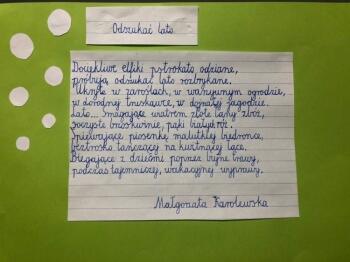 Odszukać lato
Dociekliwe elfiki pstrokato odziane,
próbują odszukać lato roześmiane.
Ukryte w zaroślach, w warzywnym ogrodzie,
w dorodnej truskawce, w dojrzałej jagodzie.
Lato... smagające wiatrem złote łany zbóż,
soczyste brzoskwinie, pąki białych róż.
Śpiewające piosenkę malutkiej biedronce,
beztrosko tańczący na kwitnącej łące.
Biegające z dziećmi poprzez bujne trawy,
podczas tajemniczej, wakacyjnej wyprawy.
Małgorzata Karolewska